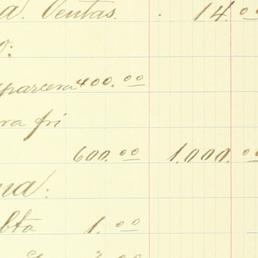 a. Ventas. . 14.00
o:
aparcera 400.00
ra fri
600.00 1.000.00
na:
bta 1.00